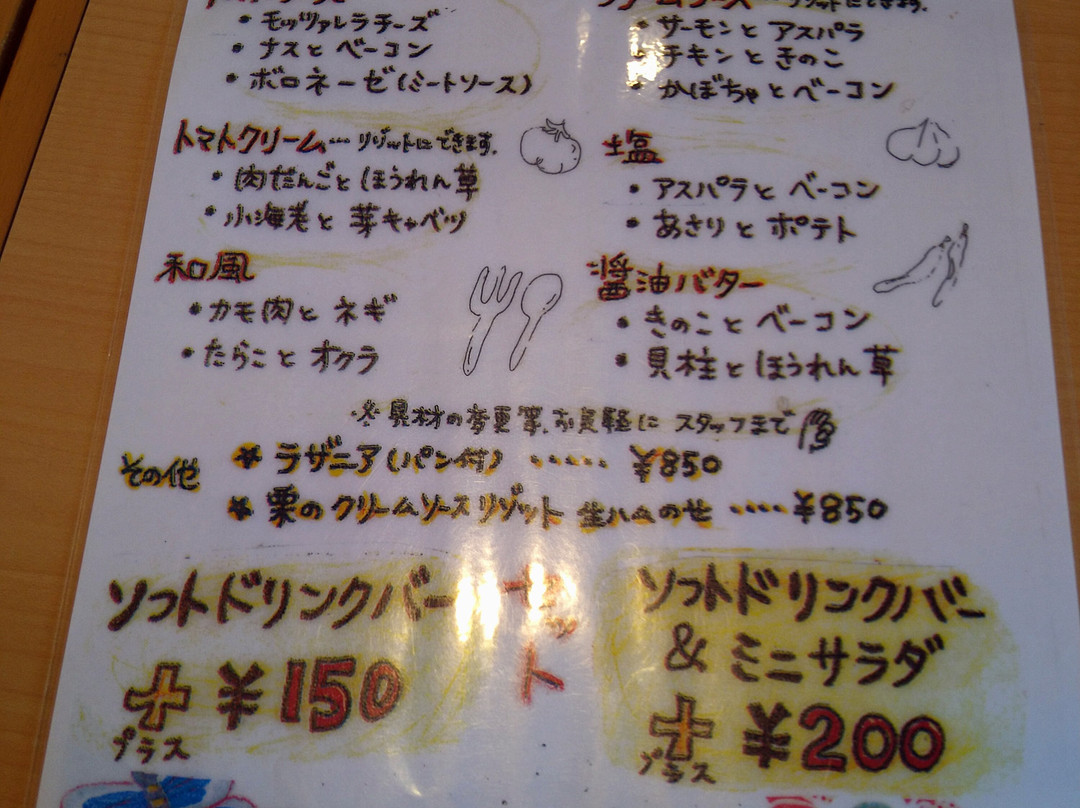 ・モッツァレラチーズ
・ナスとベーコン
・ボロネーゼ(ミートソース)
・サーモンとアスパラ
・チキンときのこ
・かぼちゃとベーコン
トマトクリーム… リゾットにできます。
・肉だんごとほうれん草
・小海老と芽キャベツ
塩
・アスパラとベーコン
・あさりとポテト
和風
・カモ肉とネギ
・たらことオクラ
醤油バター
・きのことベーコン
・貝柱とほうれん草
※具材の変更等、お気軽にスタッフまで
その他
★ラザニア(パン付)・・・・・¥850
★栗のクリームソースリゾット 生ハムのせ・・・・¥850
ソフトドリンクバー
+ ¥150
プラス
セット
ソフトドリンクバー
&ミニサラダ
+ ¥200
プラス